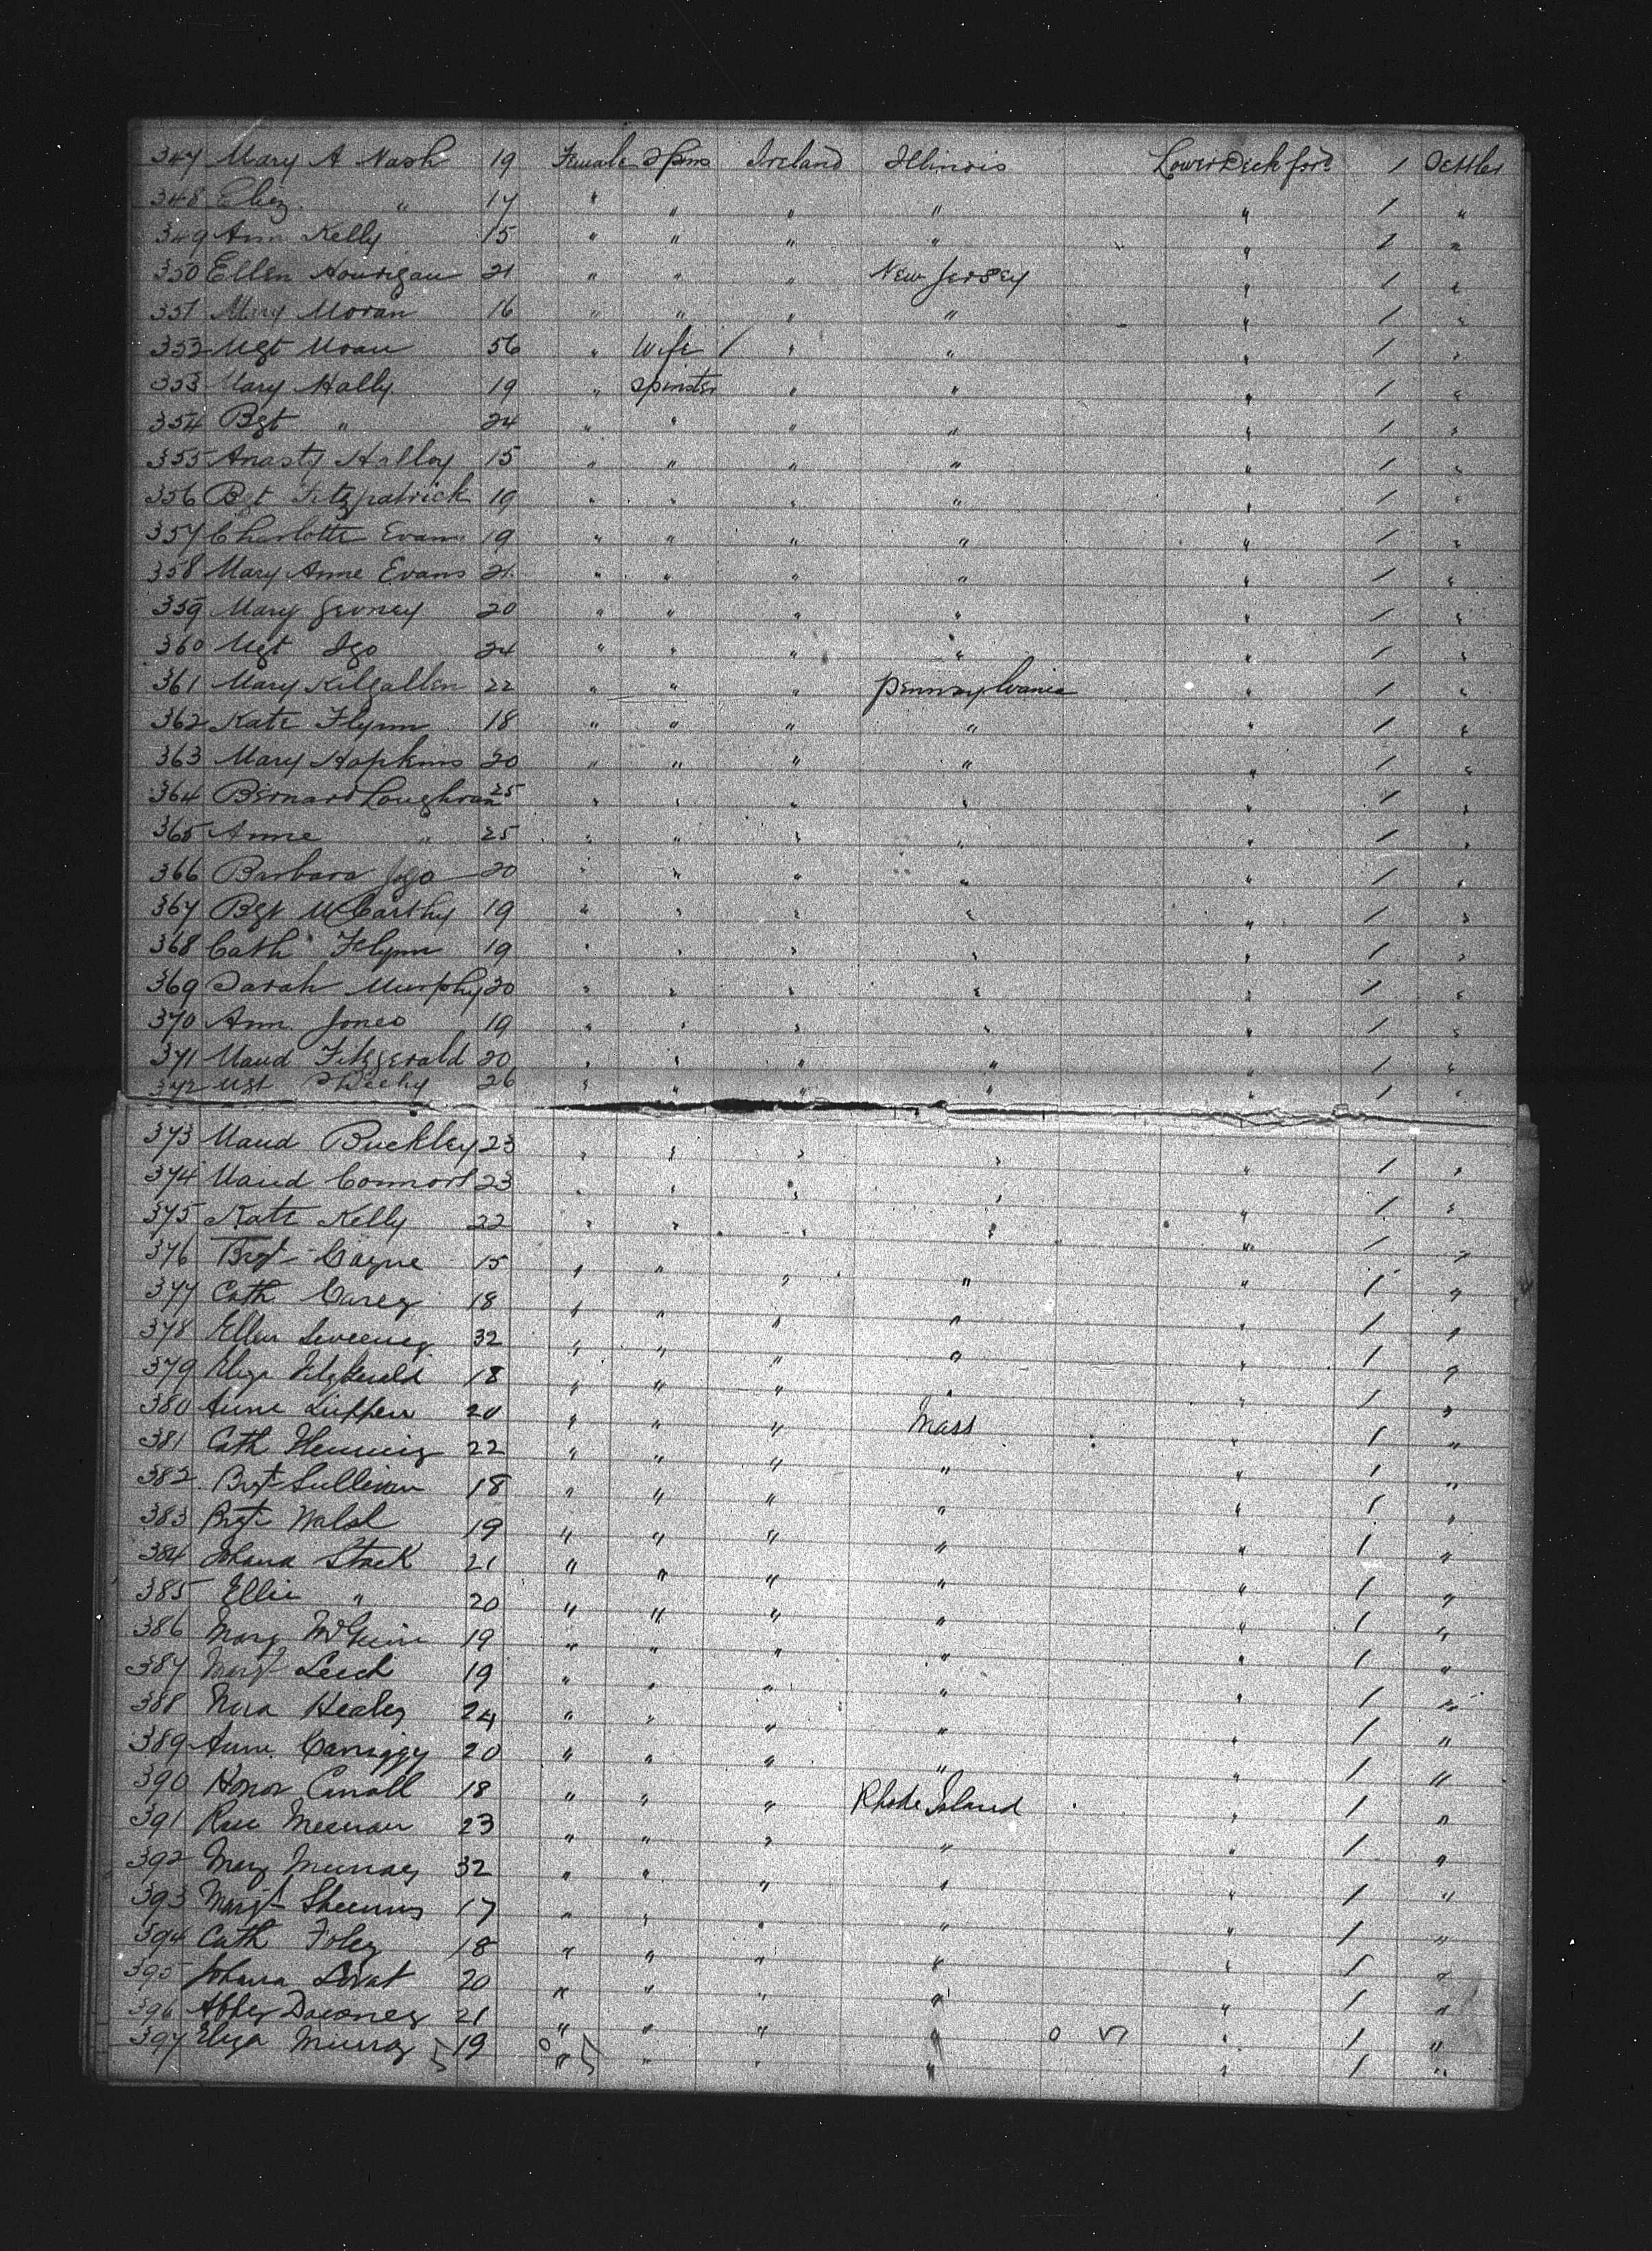 347 Mary A Nash 19 Female Spins Ireland Illinois Lower Deck ford 1 Settler
348 Eliz. " 17 " " " " " 1 "
349 Ann Kelly 15 " " " " " 1 "
350 Ellen Hourigan 21 " " " New Jersey " 1 "
351 Mary Moran 16 " " " " " 1 "
352 Mgt Moran 56 " Wife / " " " 1 "
353 Mary Hally 19 " Spinster " " " 1 "
354 Bgt " 24 " " " " " 1 "
355 Anasty Halloy 15 " " " " " 1 "
356 Bgt Fitzpatrick 19 " " " " " 1 "
357 Charlotte Evans 19 " " " " " 1 "
358 Mary Anne Evans 21 " " " " " 1 "
359 Mary 20 " " " " " 1 "
360 Mgt Igo 24 " " " " " 1 "
361 Mary Kilgallen 22 " " " Pennsylvania " 1 "
362 Kate Flynn 18 " " " " " 1 "
363 Mary Hopkins 20 " " " " " 1 "
364 Bernard Loughran 25 " " " " " 1 "
365 Anne " 25 " " " " " 1 "
366 Barbara Jgo 20 " " " " " 1 "
367 Bgt McCarthy 19 " " " " " 1 "
368 Cath Flynn 19 " " " " " 1 "
369 Sarah Murphy 20 " " " " " 1 "
370 Ann Jones 19 " " " " " 1 "
371 Maud Fitzgerald 20 " " " " " 1 "
372 Mgt Sheehy 26 " " " " " 1 "
373 Maud Buckley 23 " " " " " 1 "
374 Maud Connors 23 " " " " " 1 "
375 Kate Kelly 22 " " " " " 1 "
376 Brgt Coyne 15 " " " " " 1 "
377 Cath Carey 18 " " " " " 1 "
378 Ellen Sweeney 32 " " " " " 1 "
379 Eliza FitzGerald 18 " " " " " 1 "
380 Anne 20 " " " Mass " 1 "
381 Cath 22 " " " " " 1 "
382 Brgt Sullivan 18 " " " " " 1 "
383 Brgt Walsh 19 " " " " " 1 "
384 Johana Stack 21 " " " " " 1 "
385 Ellie " 20 " " " " " 1 "
386 Mary 19 " " " " " 1 "
387 Margt Leech 19 " " " " " 1 "
388 Nora Healey 24 " " " " " 1 "
389 Anne 20 " " " " " 1 "
390 Honor 18 " " " Rhode Island " 1 "
391 Rose 23 " " " " " 1 "
392 Mary Murray 32 " " " " " 1 "
393 Margt 17 " " " " " 1 "
394 Cath Foley 18 " " " " " 1 "
395 Johana 20 " " " " " 1 "
396 Abbey 21 " " " " " 1 "
397 Eliza Murray 19 " " " " " 1 "